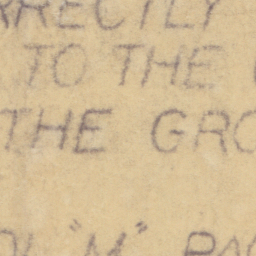 RRECTLY
TO THE
THE GRO
"M" PA